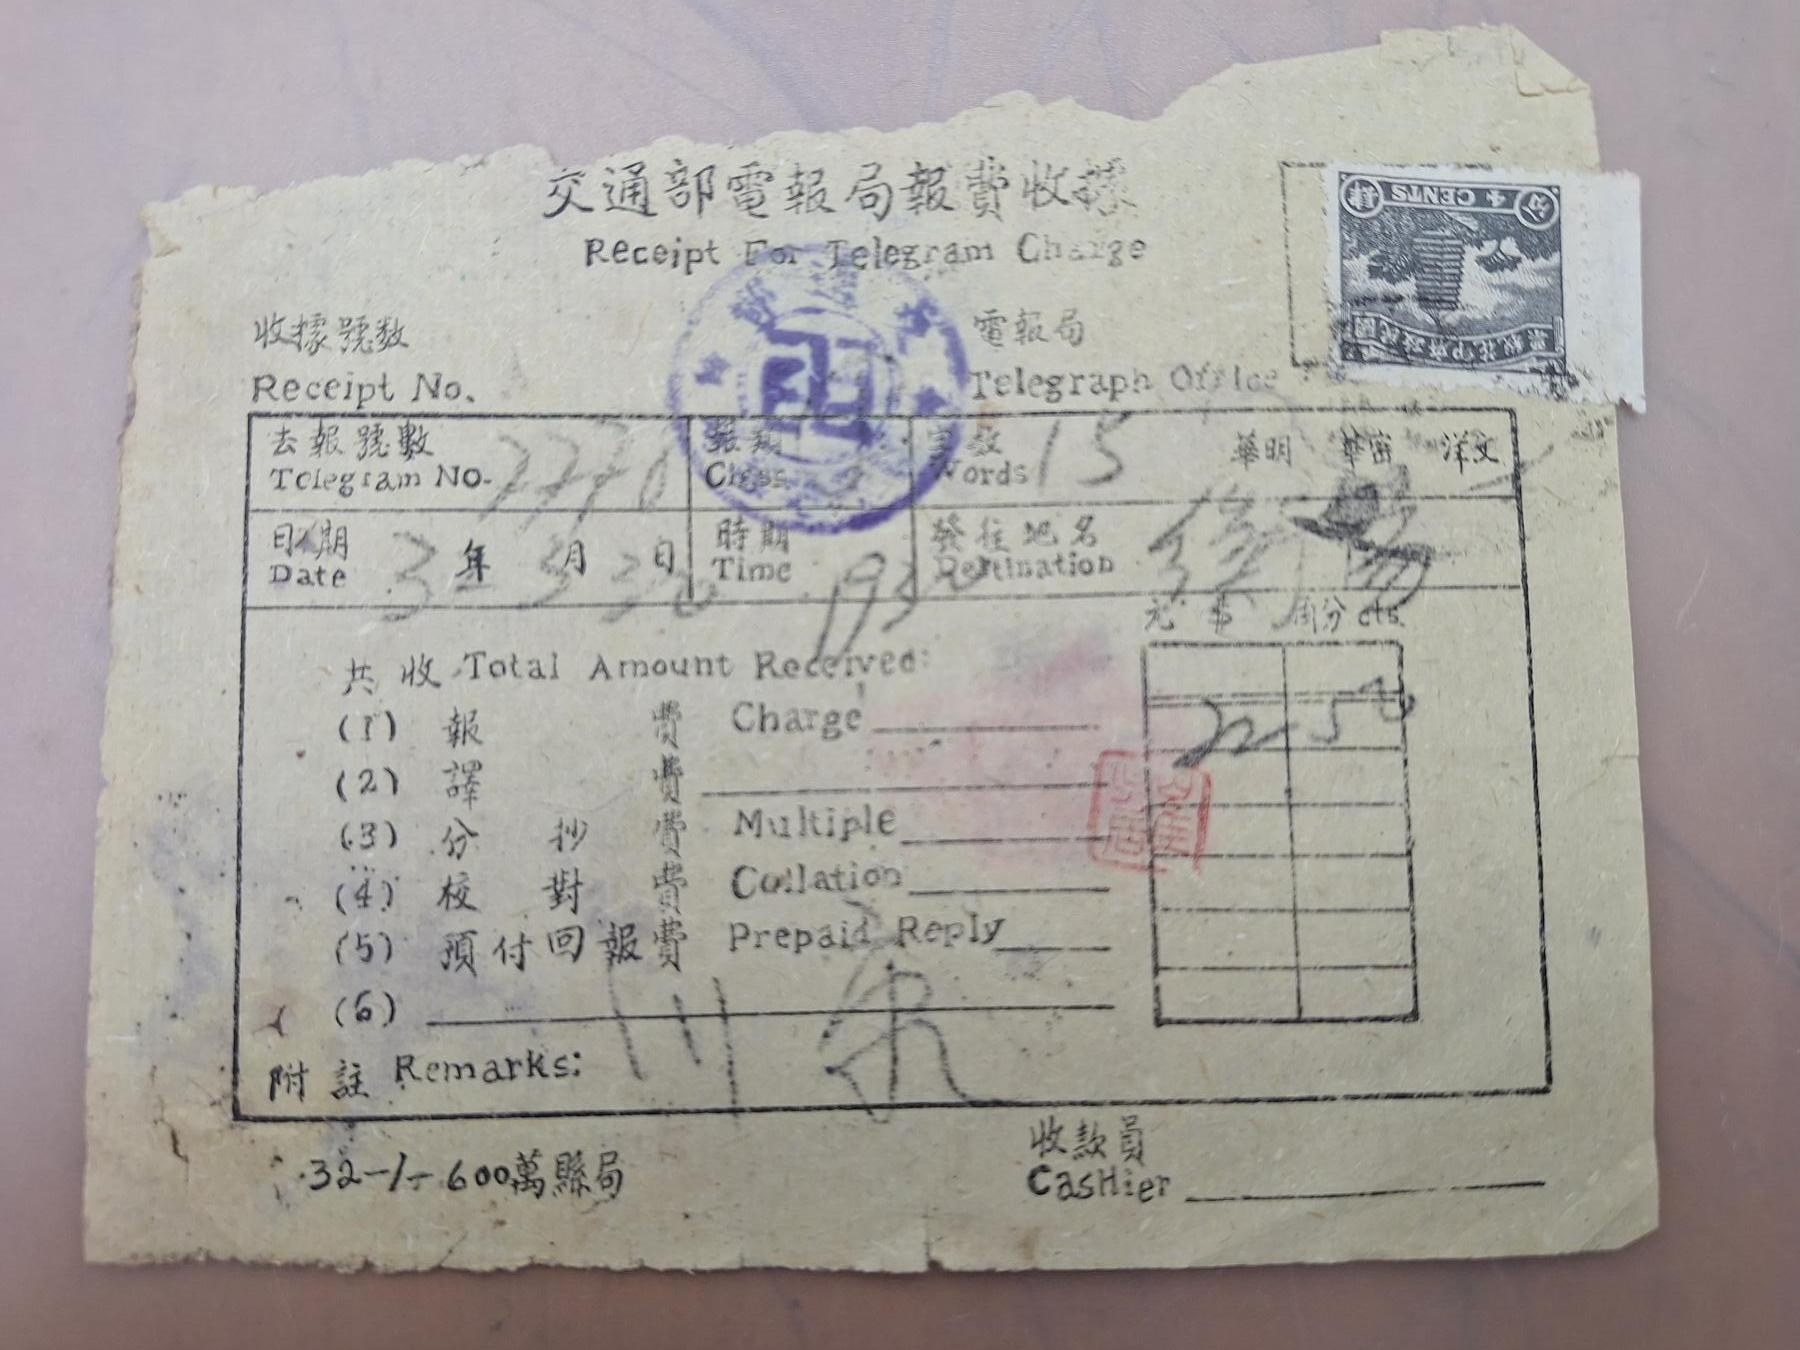 交通部電報局報費收據
Receipt For Telegram Charge
分 4 CENTS 肆
國民政府印花稅票
收據號數
Receipt No.
電報局
Telegraph Office
去報號數
Telegram No.
報類
Class
字數
Words 15
華明 華密 洋文
日期
Date 3年 5月 30日
時期
Time 1930
發往地名
Destination
元 $ 角分 cts.
共收 Total Amount Received:
(1) 報費 Charge
22 50
(2) 譯費
(3) 分抄費 Multiple
(4) 校對費 Collation
(5) 預付回報費 Prepaid Reply
(6)
附註 Remarks:
32-1-600萬縣局
收款員
Cashier